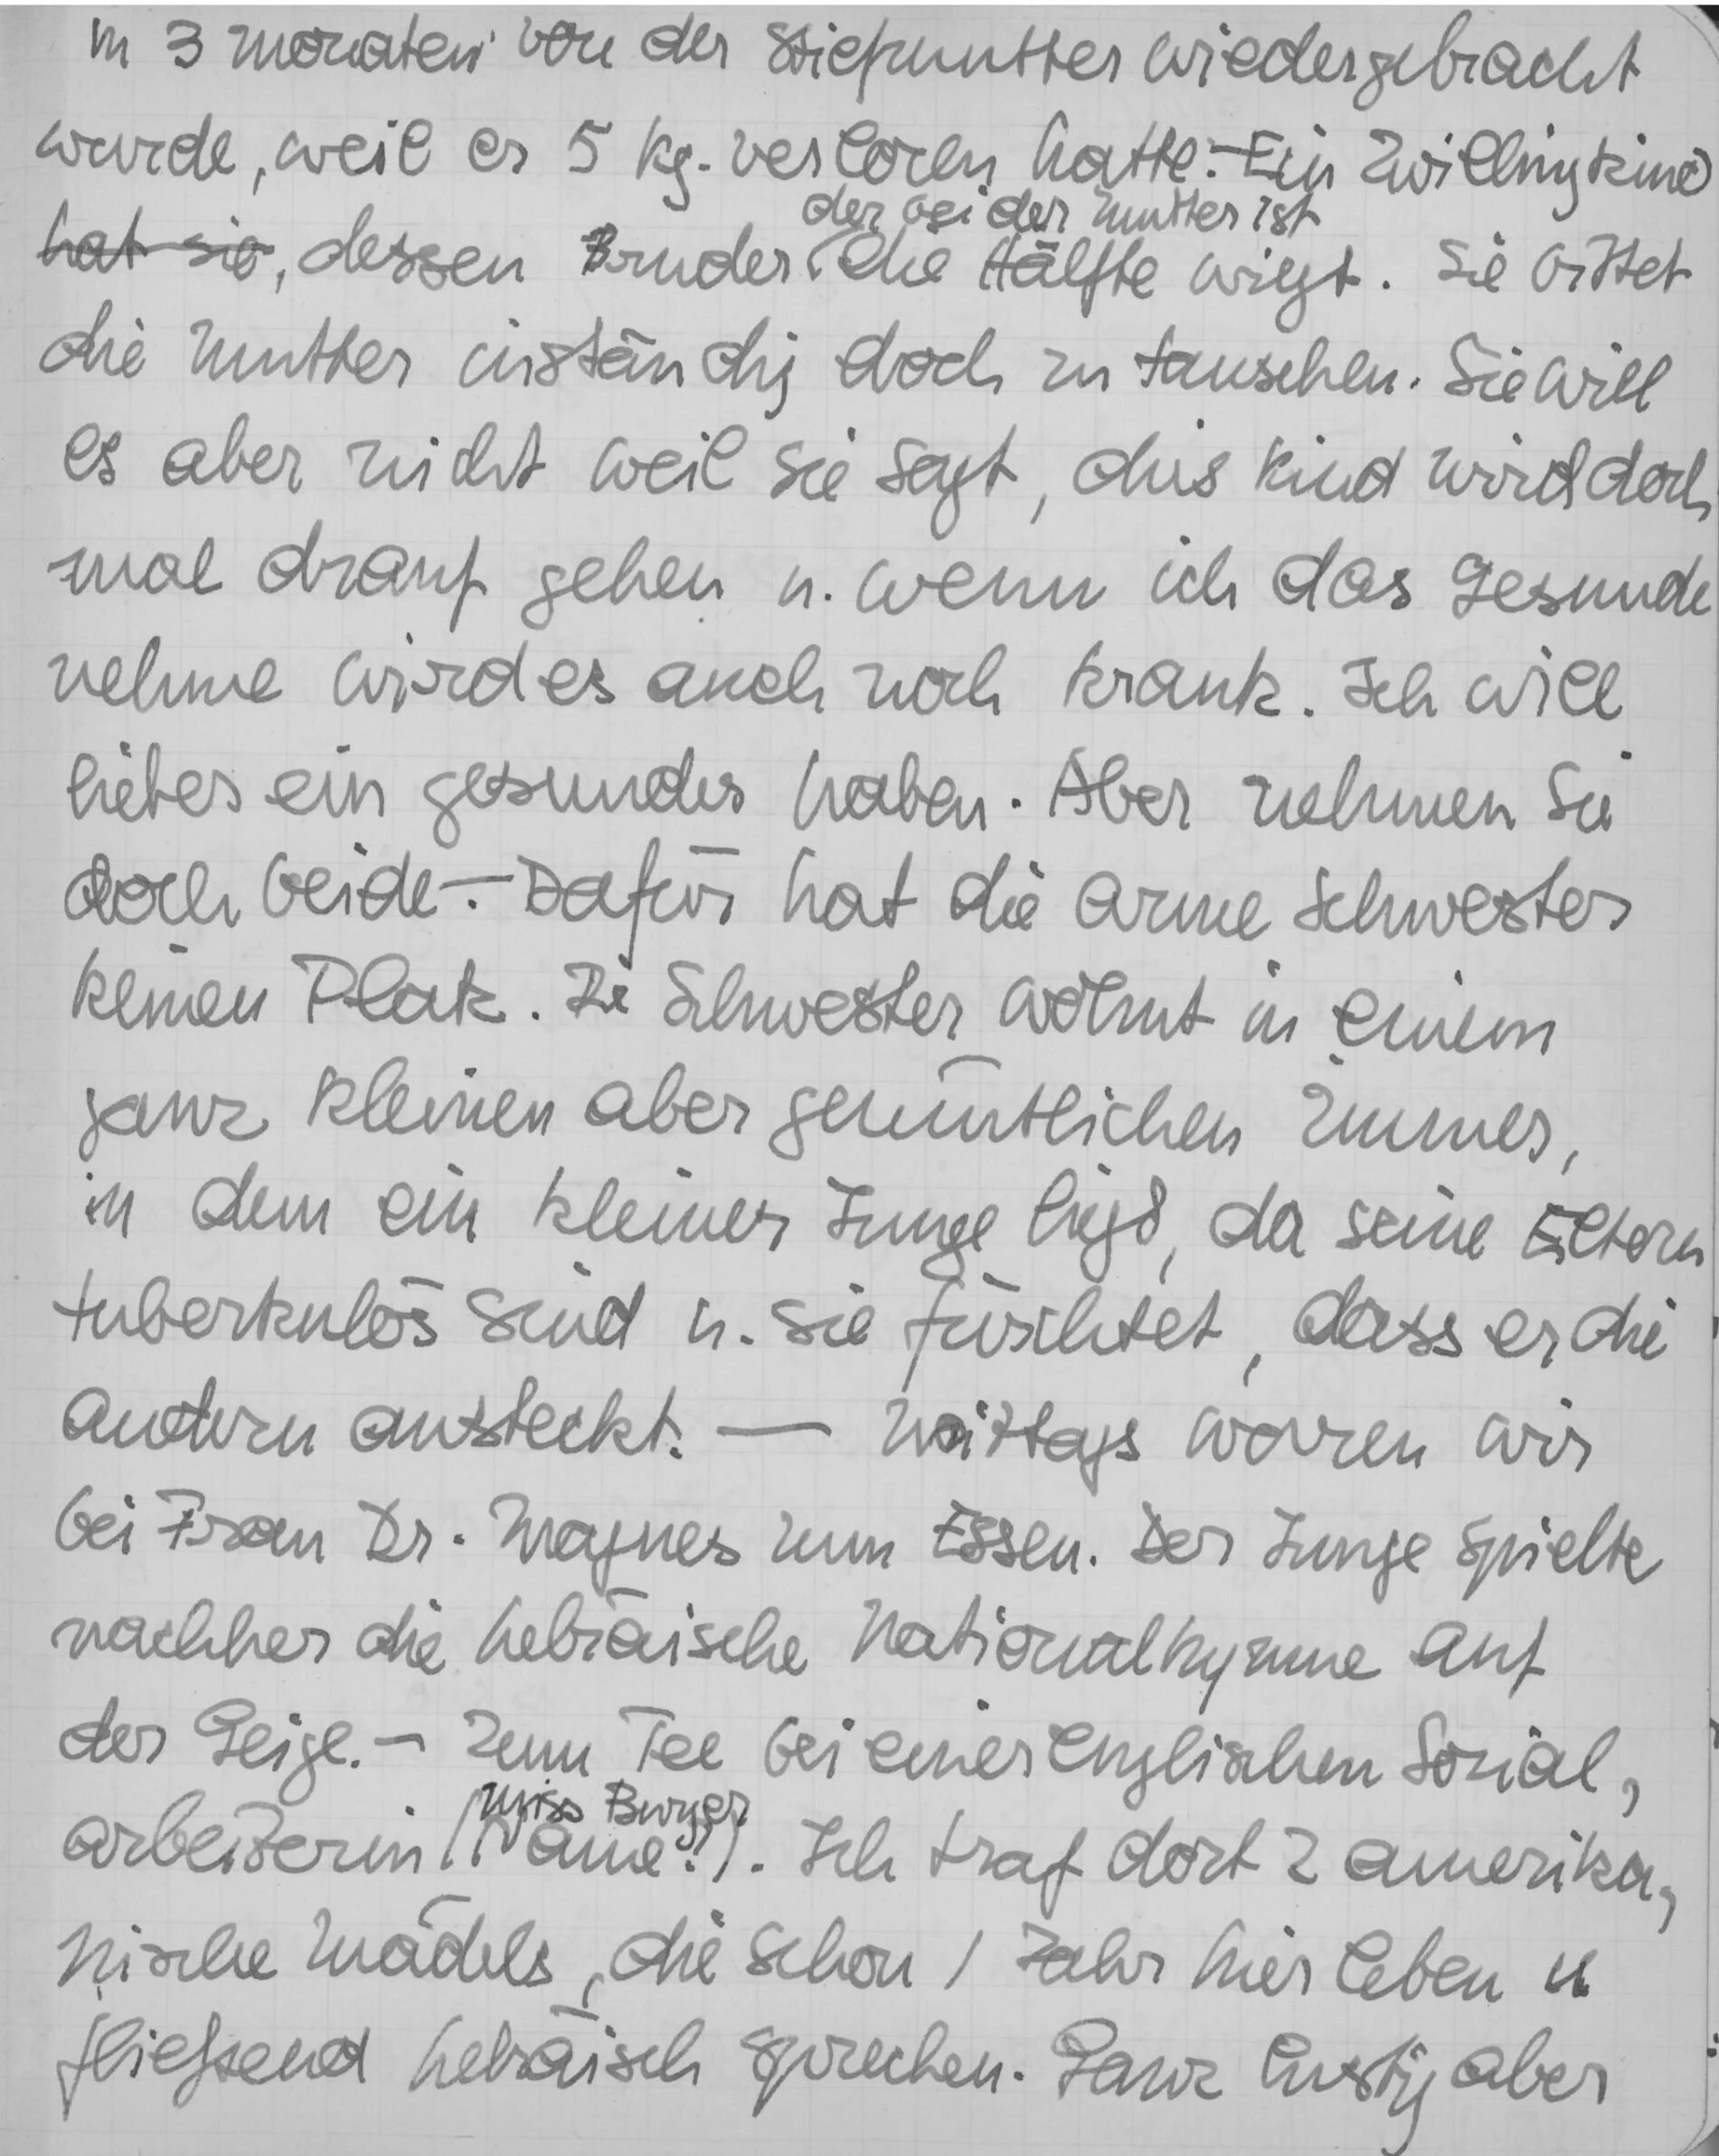 in 3 Monaten von der Stiefmutter wiedergebracht
wurde, weil er 5 kg. verloren hatte. – Ein Zwillingkind
der bei der Mutter ist
hat sie, dessen Bruder die Hälfte wiegt. Sie bittet
die Mutter inständig doch zu tauschen. Sie will
es aber nicht weil sie sagt, dies Kind wird doch
mal drauf gehen u. wenn ich das Gesunde
nehme wird es auch noch krank. Ich will
lieber ein gesundes haben. Aber nehmen Sie
doch beide. – Dafür hat die arme Schwester
keinen Platz. Die Schwester wohnt in einem
ganz kleinen aber gemütlichen Zimmer,
in dem ein kleiner Junge liegt, da seine Eltern
tuberkulös sind u. sie fürchtet, dass er die
andern ansteckt. — Mittags waren wir
bei Frau Dr. Magnes zum Essen. Der Junge spielte
nachher die hebräische Nationalhymne auf
der Geige. – Zum Tee bei einer englischen Sozial,
Miss Burger
arbeiterin (Name?). Ich traf dort 2 amerika,
nische Mädels, die schon 1 Jahr hier leben u
fließend hebräisch sprechen. Ganz lustig aber